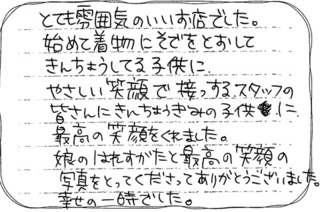 とても雰囲気のいいお店でした。
始めて着物にそでをとおして
きんちょうしてる子供に、
やさしい笑顔で接っする、スタッフの
皆さんにきんちょうぎみの子供に
最高の笑顔をくれました。
娘のはれすがたと最高の笑顔の
写真をとってくださってありがとうございました。
幸せの一時でした。